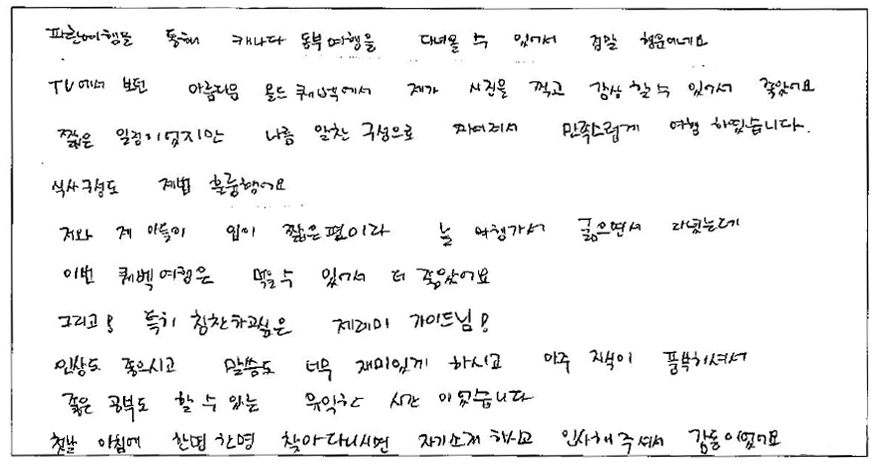 파란여행을 통해 캐나다 동부여행을 다녀올 수 있어서 정말 행운이네요
TV에서 보던 아름다운 올드 퀘벡에서 제가 사진을 찍고 감상 할 수 있어서 좋았어요
짧은 일정이었지만 나름 알찬 구성으로 짜여져서 만족스럽게 여행 하였습니다.
식사구성도 제법 훌륭했어요
저와 제 아들이 입이 짧은편이라 늘 여행가서 굶으면서 다녔는데
이번 퀘벡여행은 먹을수 있어서 더 좋았어요
그리고! 특히 칭찬하고싶은 제레미 가이드님!
인상도 좋으시고 말씀도 너무 재미있게 하시고 아주 지식이 풍부하셔서
좋은 공부도 할 수 있는 유익한 시간 이었습니다
첫날 아침에 한명 한명 찾아다니시면 자기소개 하시고 인사해 주셔서 감동이었어요